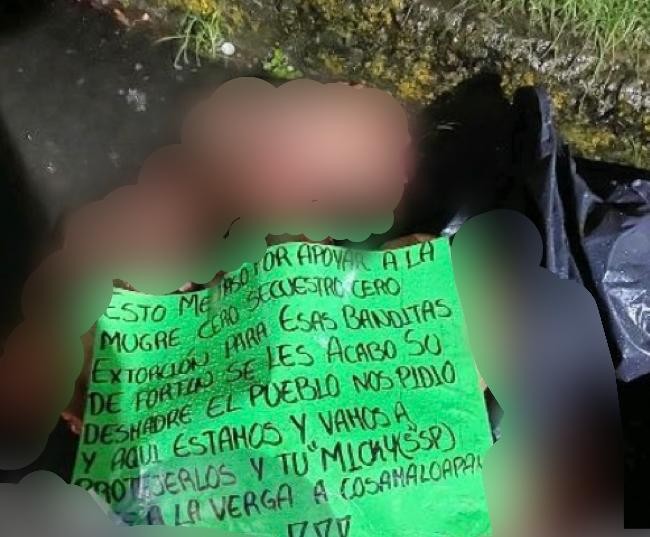 ESTO ME PASO POR APOYAR A LA
MUGRE CERO SECUESTRO CERO
EXTORCIÓN PARA ESAS BANDITAS
DE FORTIN SE LES ACABO SU
DESMADRE EL PUEBLO NOS PIDIO
Y AQUI ESTAMOS Y VAMOS A
PROTEJERLOS Y TU "MICKY(SSP)
A LA VERGA A COSAMALOAPAN